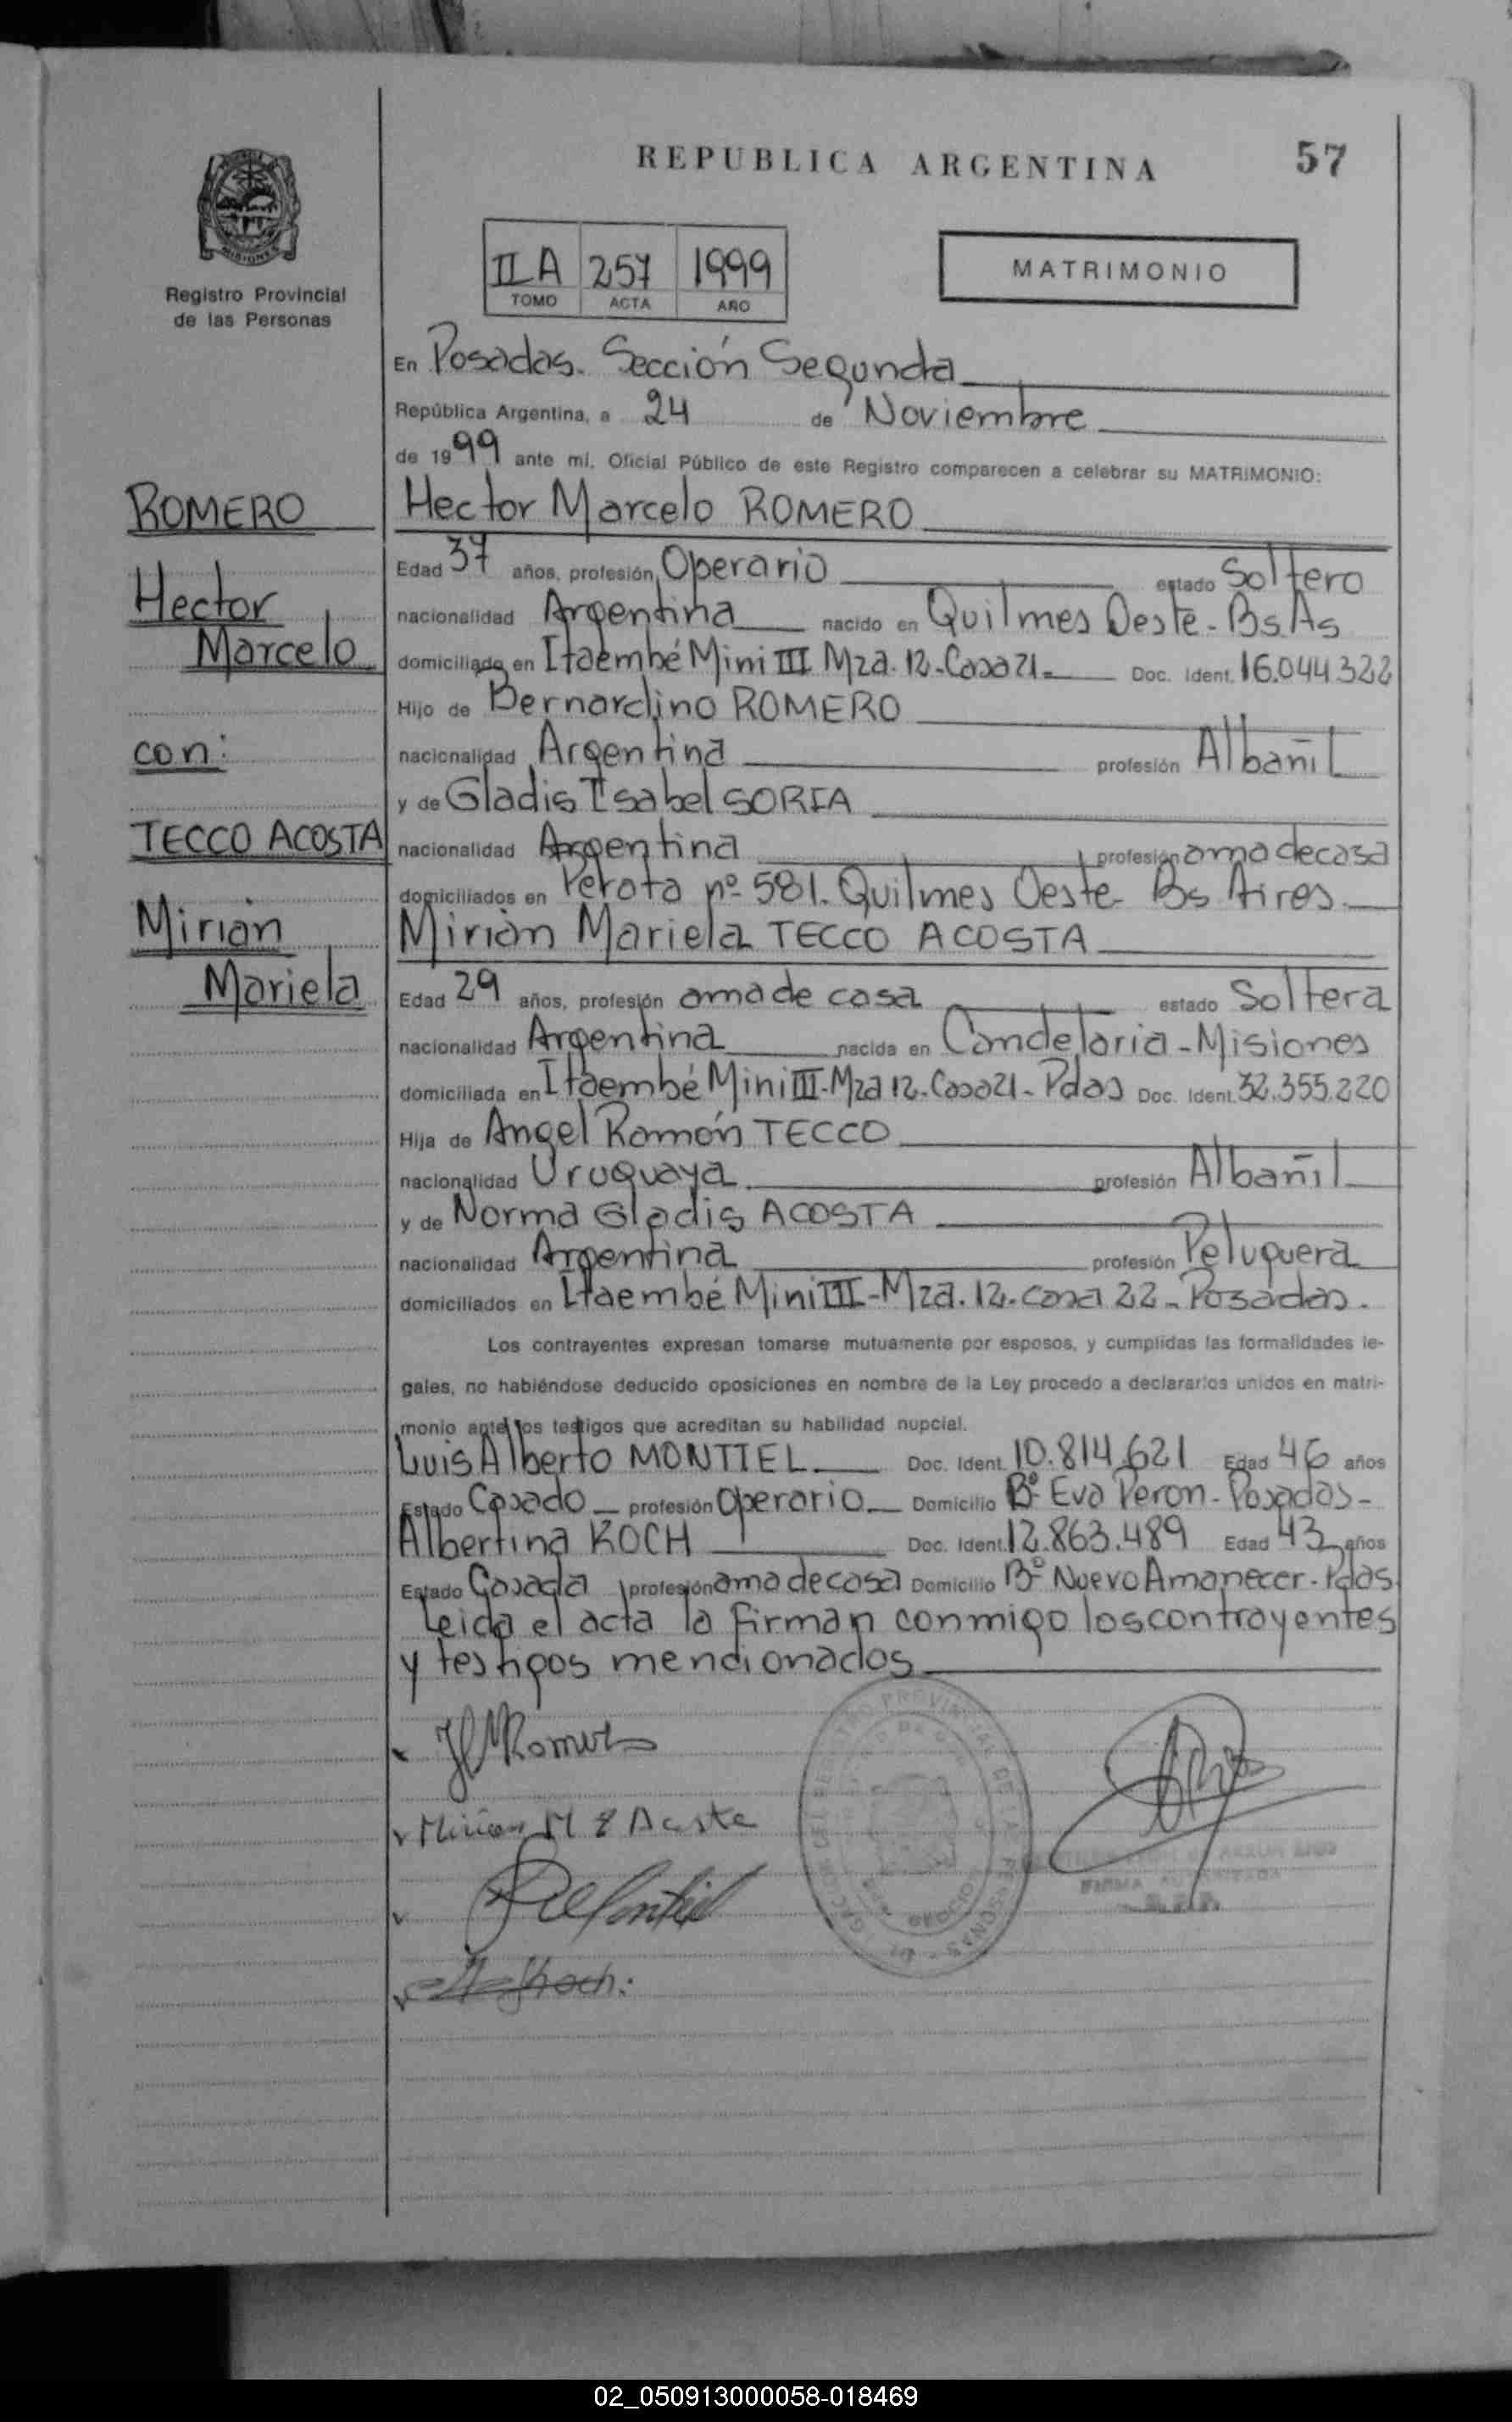 REPUBLICA ARGENTINA
57
MISIONES
Registro Provincial
de las Personas
II A 257 1999
TOMO ACTA AÑO
MATRIMONIO
En Posadas. Sección Segunda
República Argentina, a 24 de Noviembre
de 1999 ante mí, Oficial Público de este Registro comparecen a celebrar su MATRIMONIO:
ROMERO
Hector
Marcelo
con:
TECCO ACOSTA
Mirian
Mariela
Hector Marcelo ROMERO
Edad 37 años, profesión Operario estado Soltero
nacionalidad Argentina nacido en Quilmes Oeste - Bs.As
domiciliado en Itaembé Mini III Mza. 12-Casa 21- Doc. Ident. 16.044.322
Hijo de Bernardino ROMERO
nacionalidad Argentina profesión Albañil
y de Gladis Isabel SORIA
nacionalidad Argentina profesión ama de casa
domiciliados en Perota nº 581. Quilmes Oeste- Bs Aires.
Mirian Mariela TECCO ACOSTA
Edad 29 años, profesión ama de casa estado Soltera
nacionalidad Argentina nacida en Candelaria - Misiones
domiciliada en Itaembé Mini III-Mza 12-Casa 21- Pdas Doc. Ident. 32.355.220
Hija de Angel Ramón TECCO
nacionalidad Uruguaya profesión Albañil
y de Norma Gladis ACOSTA
nacionalidad Argentina profesión Peluquera
domiciliados en Itaembé Mini III-Mza. 12-casa 22-Posadas.
Los contrayentes expresan tomarse mutuamente por esposos, y cumplidas las formalidades le-
gales, no habiéndose deducido oposiciones en nombre de la Ley procedo a declararlos unidos en matri-
monio ante los testigos que acreditan su habilidad nupcial.
Luis Alberto MONTIEL Doc. Ident. 10.814.621 Edad 46 años
Estado Casado profesión Operario Domicilio Bº Eva Peron - Posadas-
Albertina KOCH Doc. Ident. 12.863.489 Edad 43 años
Estado Casada profesión ama de casa Domicilio Bº Nuevo Amanecer - Pdas
Leida el acta la firman conmigo los contrayentes
y testigos mencionados
HMRomero
Mirian M T Acosta
Koch:
FIRMA AUTORIZADA
02_050913000058-018469